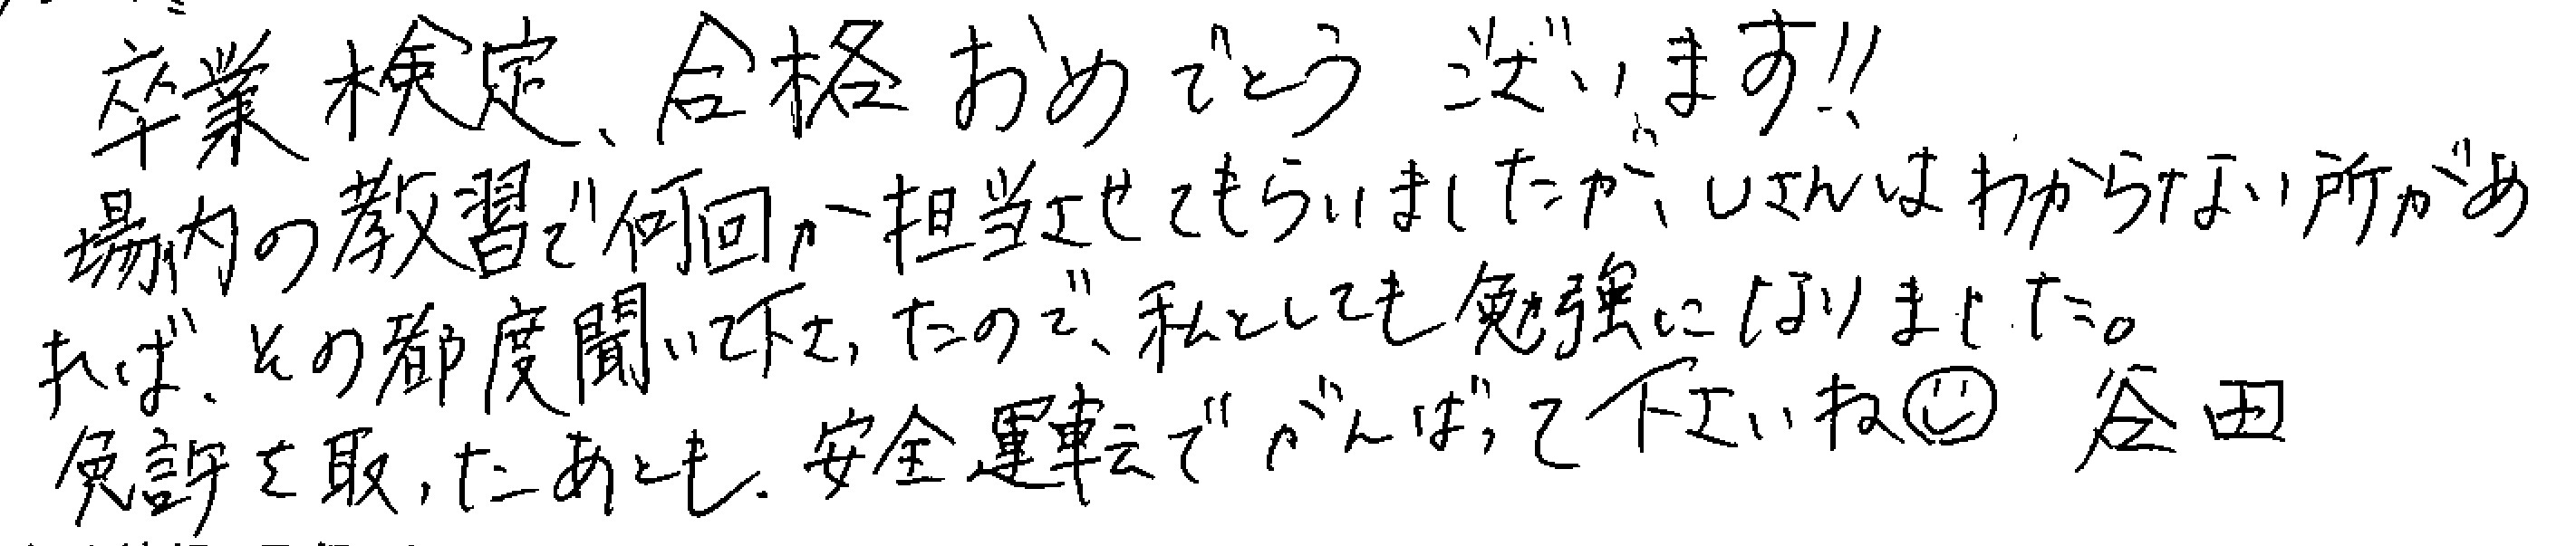 卒業検定、合格おめでとうございます!!
場内の教習で何回か担当させてもらいましたが、Uさんはわからない所があ
れば、その都度聞いて下さったので、私としても勉強になりました。
免許を取ったあとも、安全運転でがんばって下さいね☺ 谷田